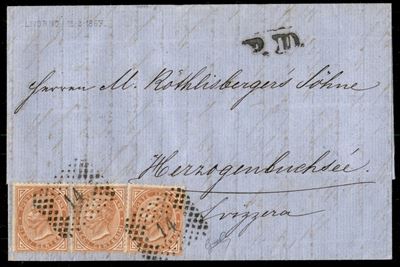 LIVORNO 15-2-1867
P.D.
Herren M. Röthlisberger's Söhne
Herzogenbuchsée.
Svizzera
14
14